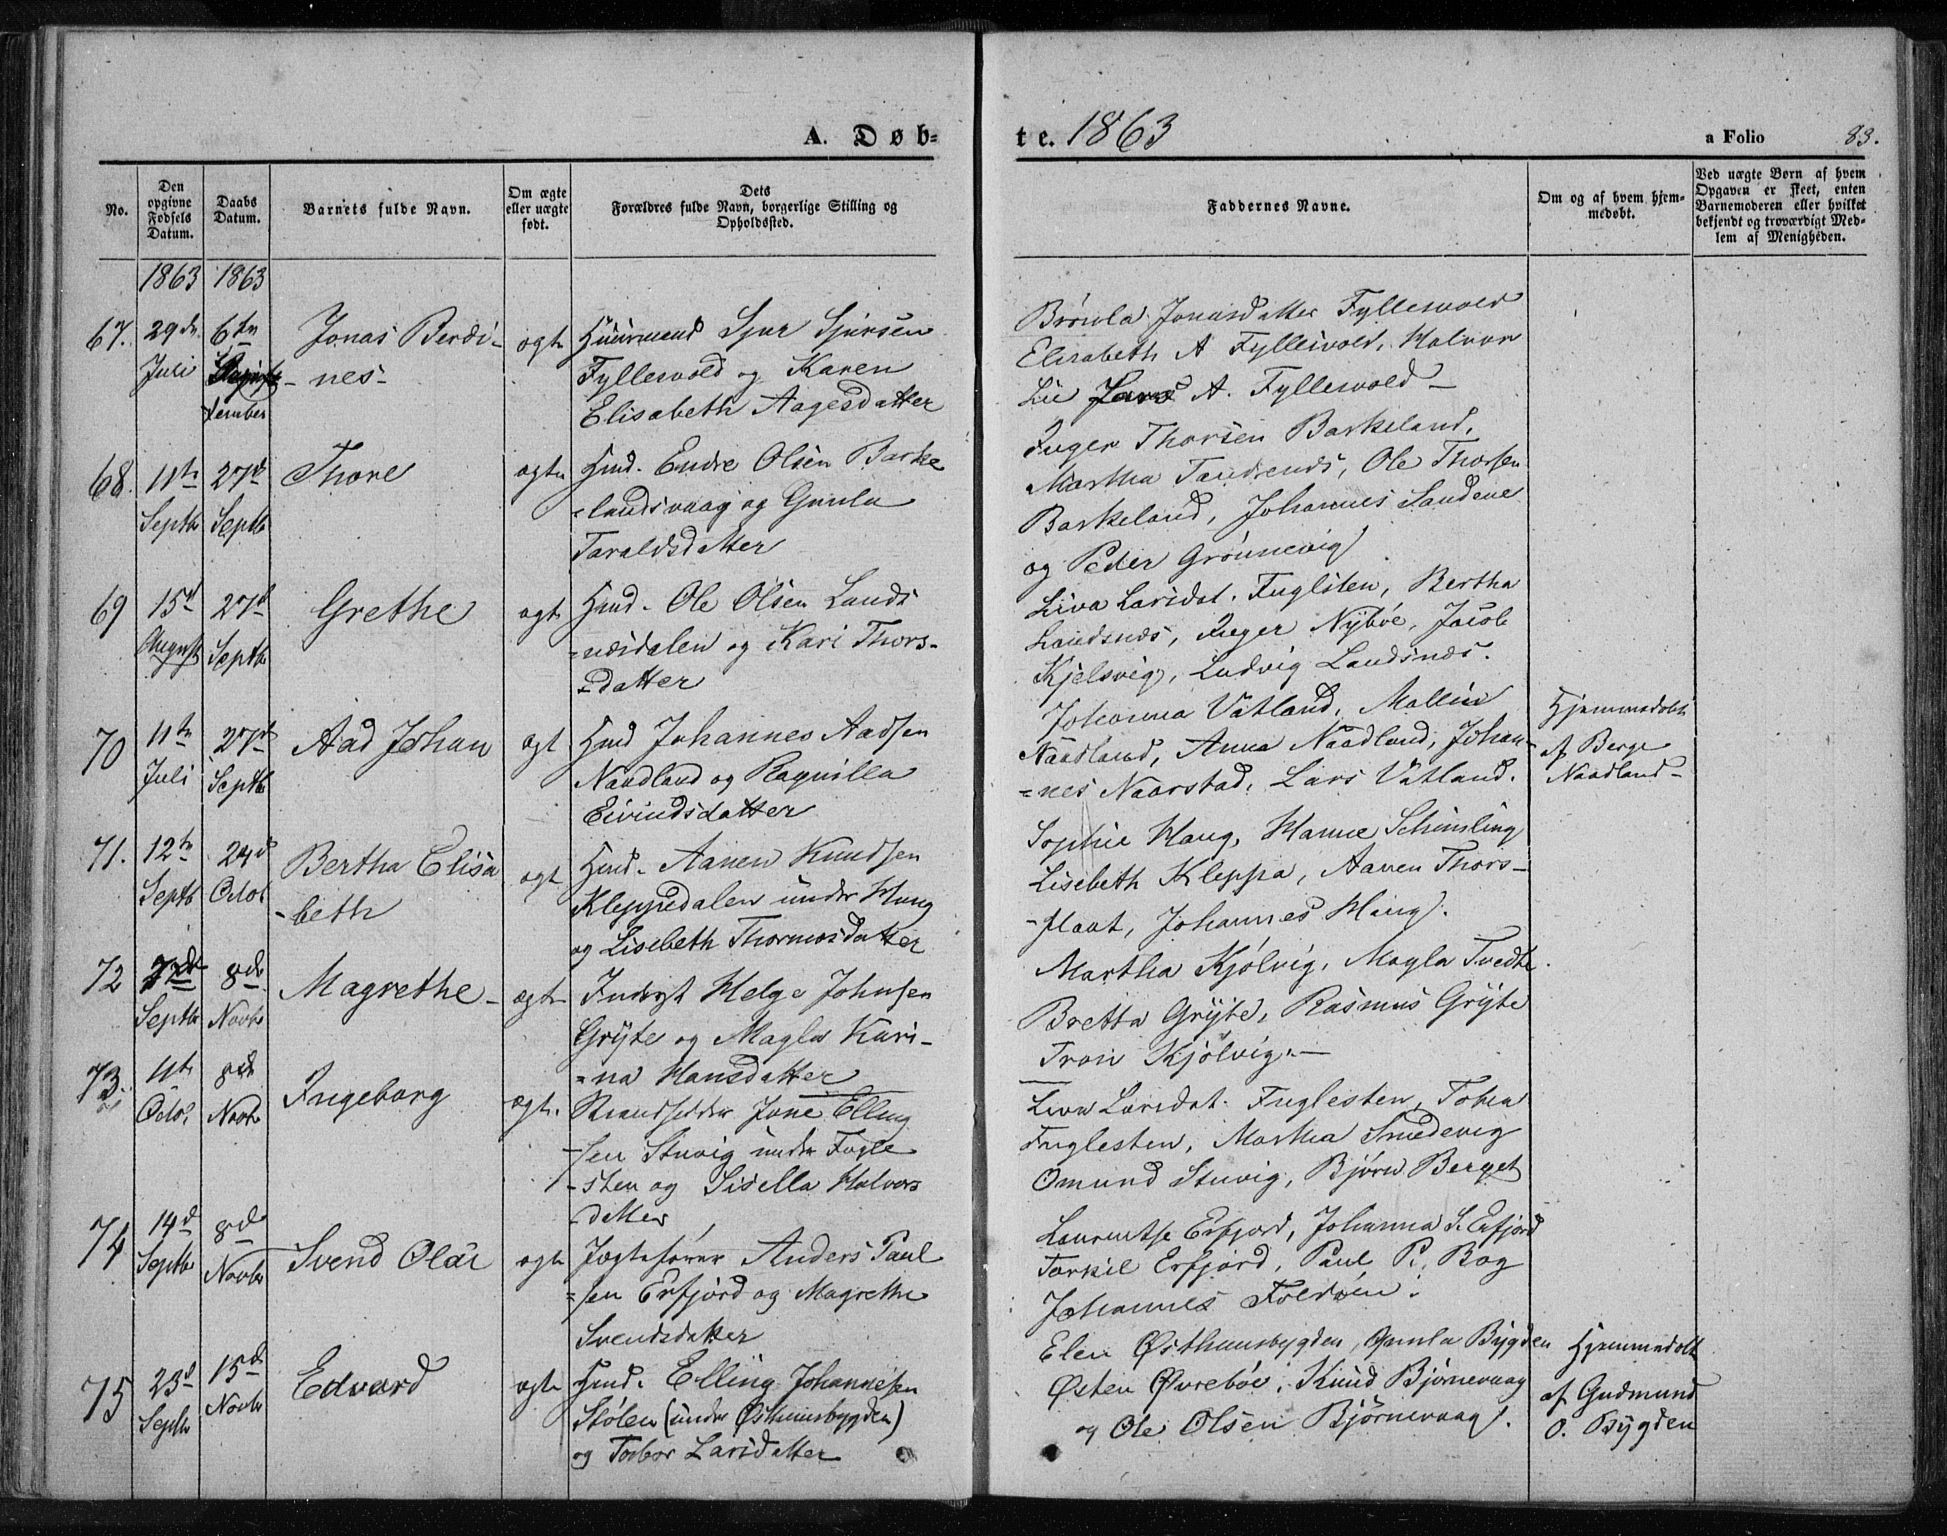 A. Døb-
te. 1863
a Folio 83.
No.
Den opgivne Fødsels Datum.
Daabs Datum.
Barnets fulde Navn.
Om ægte eller uægte født.
Dets Forældres fulde Navn, borgerlige Stilling og Opholdssted.
Faddernes Navne.
Om og af hvem hjem-
medøbt.
Ved uægte Børn af hvem
Opgaven er skeet, enten
Barnemoderen eller hvilket
bekjendt og troværdigt Med-
lem af Menigheden.
1863 1863
67. 29de Juli
6te
tember
Jonas Berdi-
nes-
ægte
Huusmand Sjur Sjursen
Fyllesvold og Karen
Elisabeth Aagesdatter
Brønla Jonasdatter Fyllesvold
Elisabeth A Fyllesvold, Halvor
Lie Lars A. Fyllesvold
68. 11te Septbr
27d Septbr
Thore
ægte
Hmd. Endre Olsen Barke
=landsvaag og Gunla
Taraldsdatter
Inger Thorsen Barkeland,
Martha Tandrends, Ole Thorsen
Barkeland, Johannes Sandene
og Peder Grønnevig
69 15d August
27d Septbr
Grethe
ægte
Hmd. Ole Olsen Lands
=næsdalen og Kari Thors-
=datter
Liva Larsdat. Fuglsten, Bertha
Landsnæs, Inger Nybøe, Jacob
Kjelsvig, Ludvig Landsnæs.
70 11te Juli
27d Septbr
Aad Johan
ægt
Hmd Johannes Aadsen
Naadland og Ragnilla
Eivindsdatter
Johanna Vatland, Mallin
Naadland, Anna Naadland, Johan-
=nes Naarstad, Lars Vatland.
Hjemmedøbt
af Berge
Naadland-
71. 12te Septb
24d Octob
Bertha Elisa
-beth
ægt
Hmd. Aanen Knudsen
Kleppedalen under Haug
og Lisebeth Thormosdatter
Sophie Haug, Hanne Schinsling
Lisebeth Kleppa, Aanen Thors-
Johannes Haug.
72 Septbr
8de Novbr
Magrethe-
ægte
Inderst Helge Johnsen
Gryte og Magla Kari-
=na Hansdatter
Martha Kjølvig, Magla Tvedte.
Bretta Gryte, Rasmus Gryte
Tron Kjølvig.-
73. 4te Octob.
8de Novbr
Ingeborg
ægte.
Strandsidder Jone Elling
-sen Stuvig under Fugle
-sten og Sisella Halvors
datter
Liva Larsdat. Fuglesten, Tobia
Fuglesten, Martha Smedevig
Omund Stuvig, Bjørn Berget
74 14d Septbr
8de Novbr
Svend Olai
ægte
Jagtefører Anders Paul
=sen Erfjord og Magrethe
Svendsdatter
Laurentse Erfjord, Johanna S. Erfjord
Torkil Erfjord, Paul P. Bog
Johannes Foldøen.
75 23d Septbr
15d Novbr
Edvard
ægte
Hmd. Elling Johannesen
Stølen (under Østhuusbygden)
og Torbor Larsdatter
Elen Østhuusbygden, Gunla Bygden
Østen Øvrebøe, Knud Bjørnevaag
og Ole Olsen Bjørnevaag.
Hjemmedøbt
af Gudmund
O. Bygden